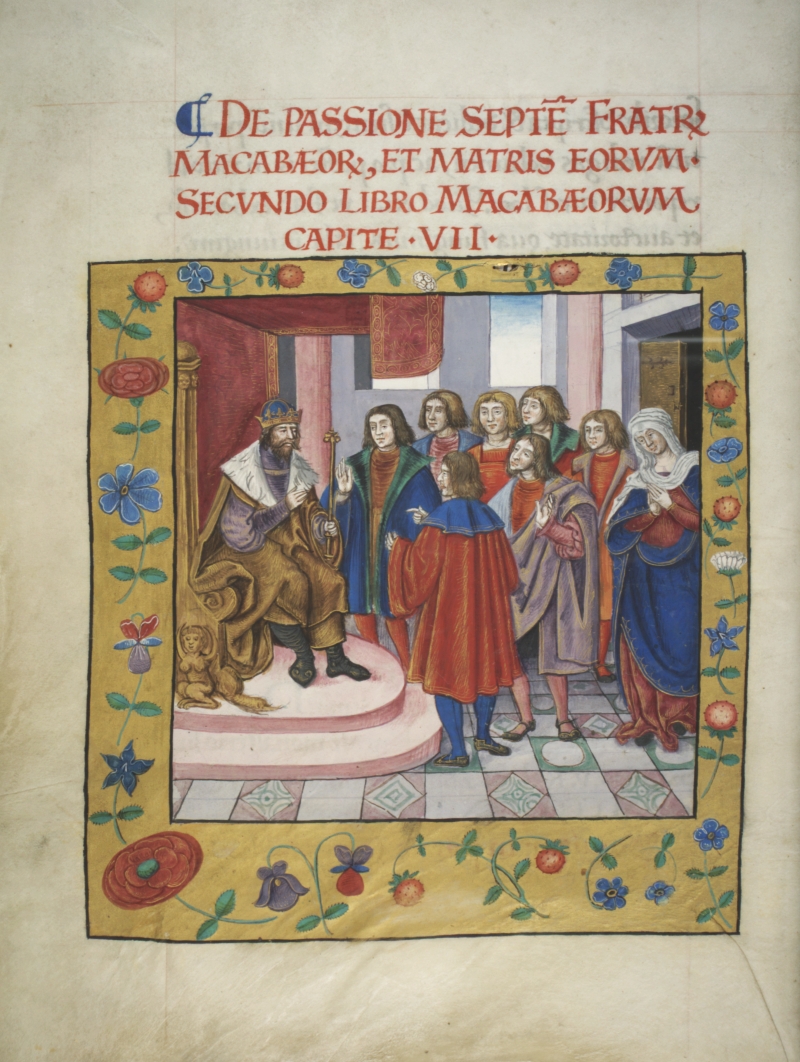 ¶ DE PASSIONE SEPTĒ FRATRꝜ
MACABÆORꝜ, ET MATRIS EORVM·
SECVNDO LIBRO MACABÆORVM
CAPITE ·VII·